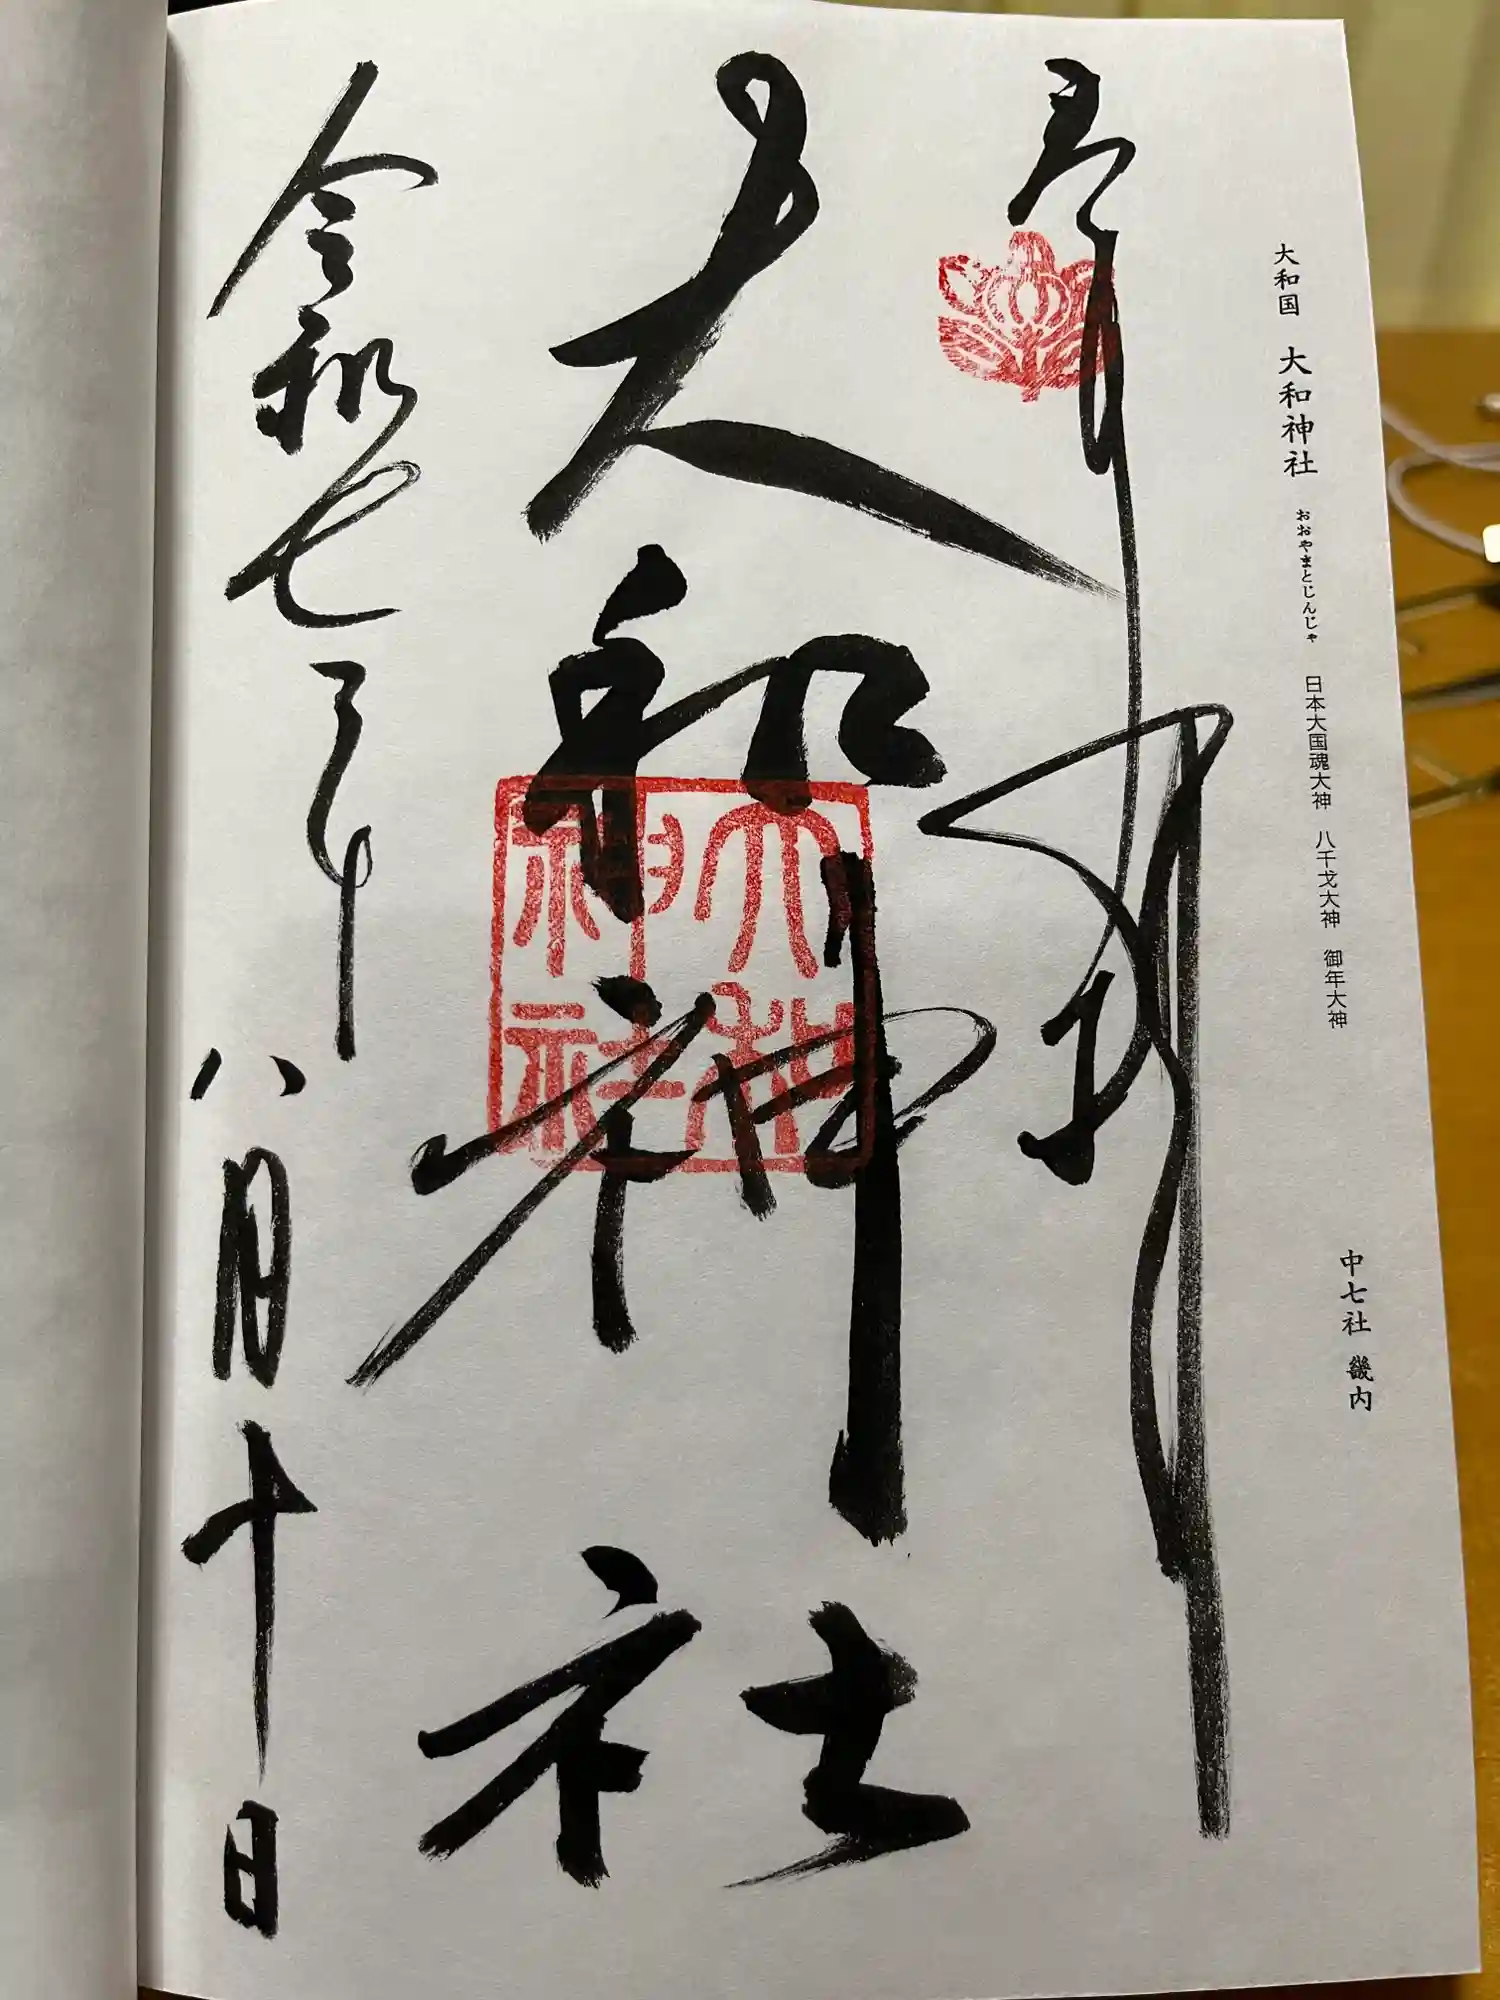 大和国 大和神社 おおやまとじんじゃ 日本大国魂大神 八千戈大神 御年大神 中七社 畿内
奉拝
大和神社
大和神社
令和七年 八月十日